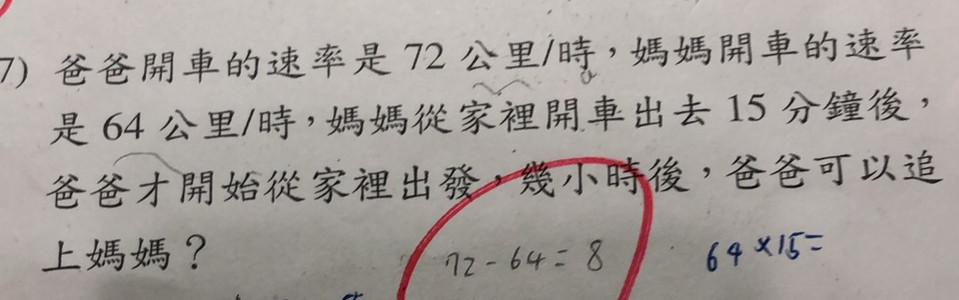 7) 爸爸開車的速率是 72 公里/時，媽媽開車的速率
是 64 公里/時，媽媽從家裡開車出去 15 分鐘後，
爸爸才開始從家裡出發，幾小時後，爸爸可以追
上媽媽？
72-64=8
64×15=